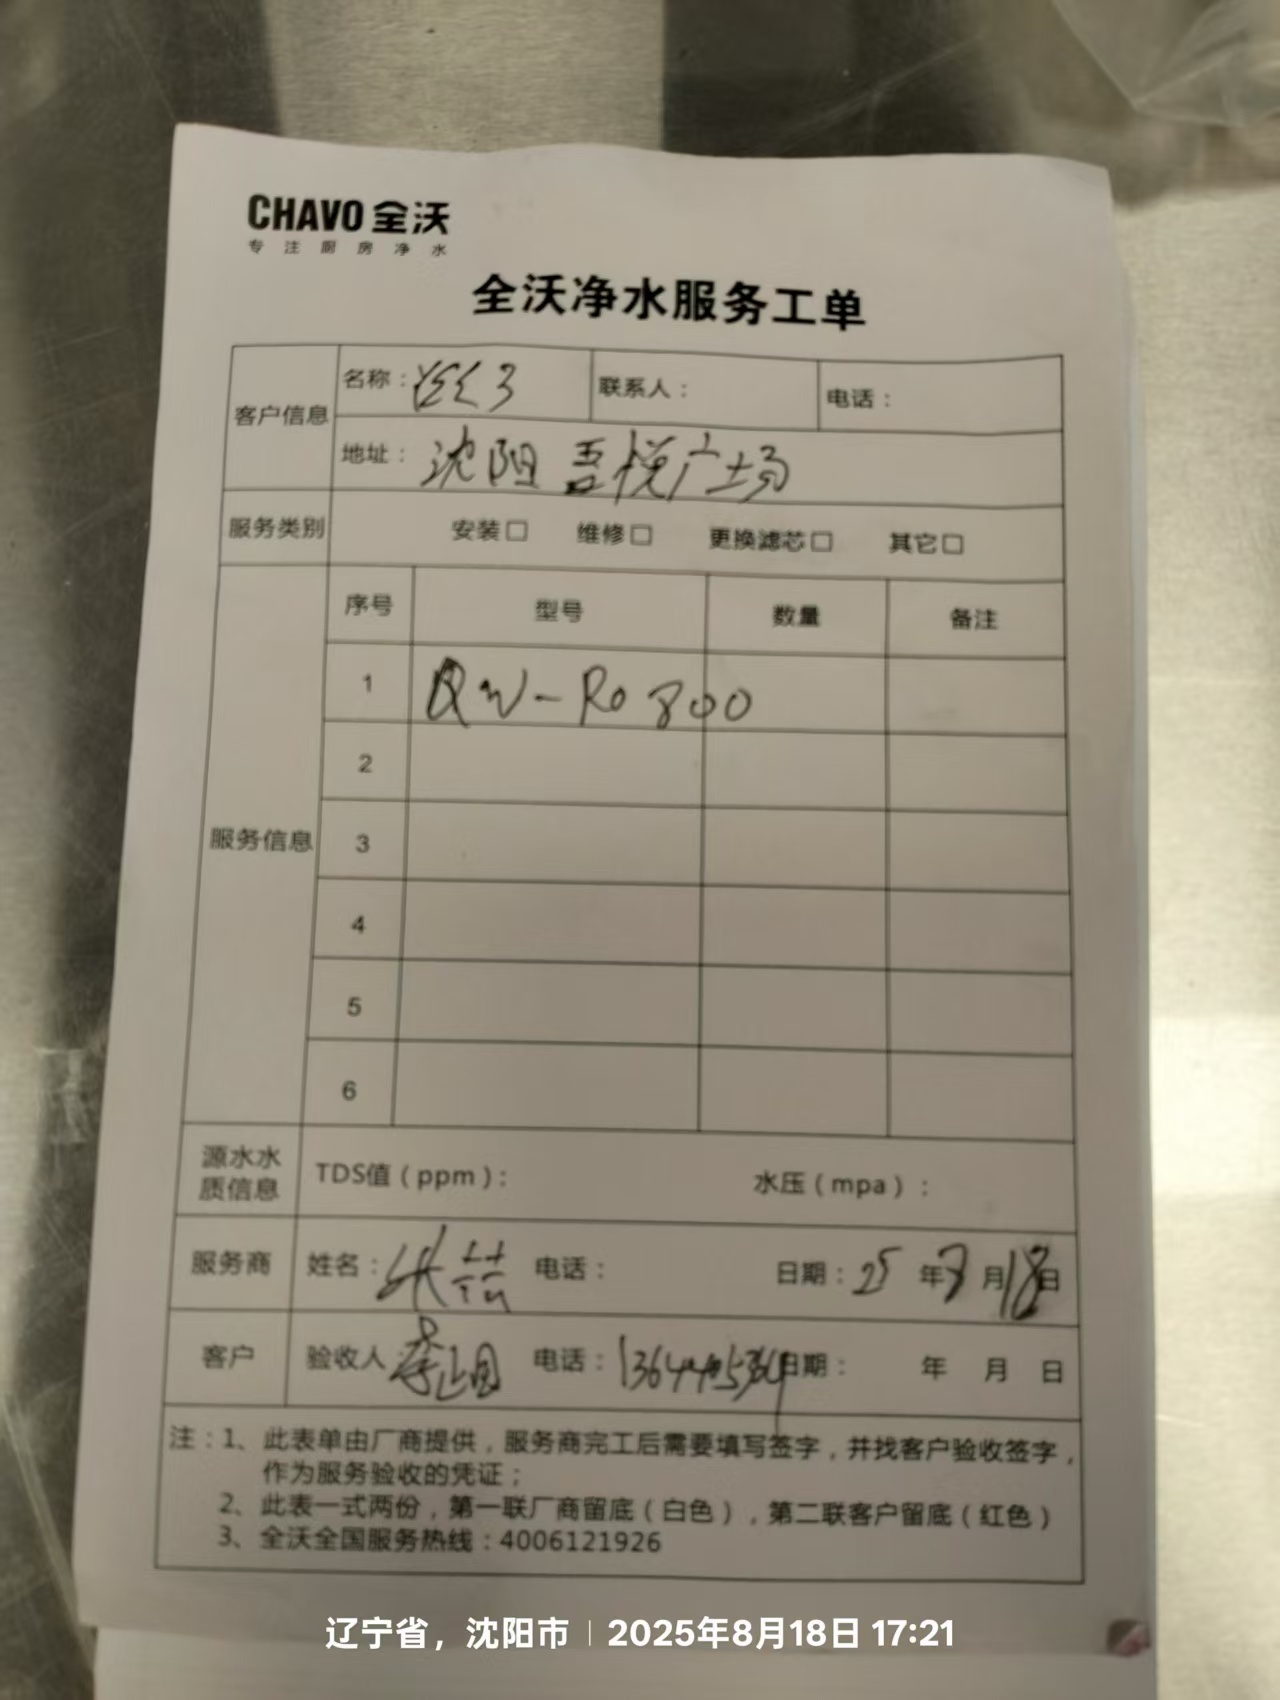 CHAVO 全沃
专注厨房净水
全沃净水服务工单
客户信息 名称： 联系人： 电话：
地址：沈阳 吾悦广场
服务类别 安装□ 维修□ 更换滤芯□ 其它□
服务信息 序号 型号 数量 备注
1 QW-Ro 800
2
3
4
5
6
源水水质信息 TDS值（ppm）： 水压（mpa）：
服务商 姓名： 电话： 日期：25年8月18日
客户 验收人 电话： 日期： 年 月 日
注：1、此表单由厂商提供，服务商完工后需要填写签字，并找客户验收签字，
作为服务验收的凭证；
2、此表一式两份，第一联厂商留底（白色），第二联客户留底（红色）
3、全沃全国服务热线：4006121926
辽宁省，沈阳市 | 2025年8月18日 17:21